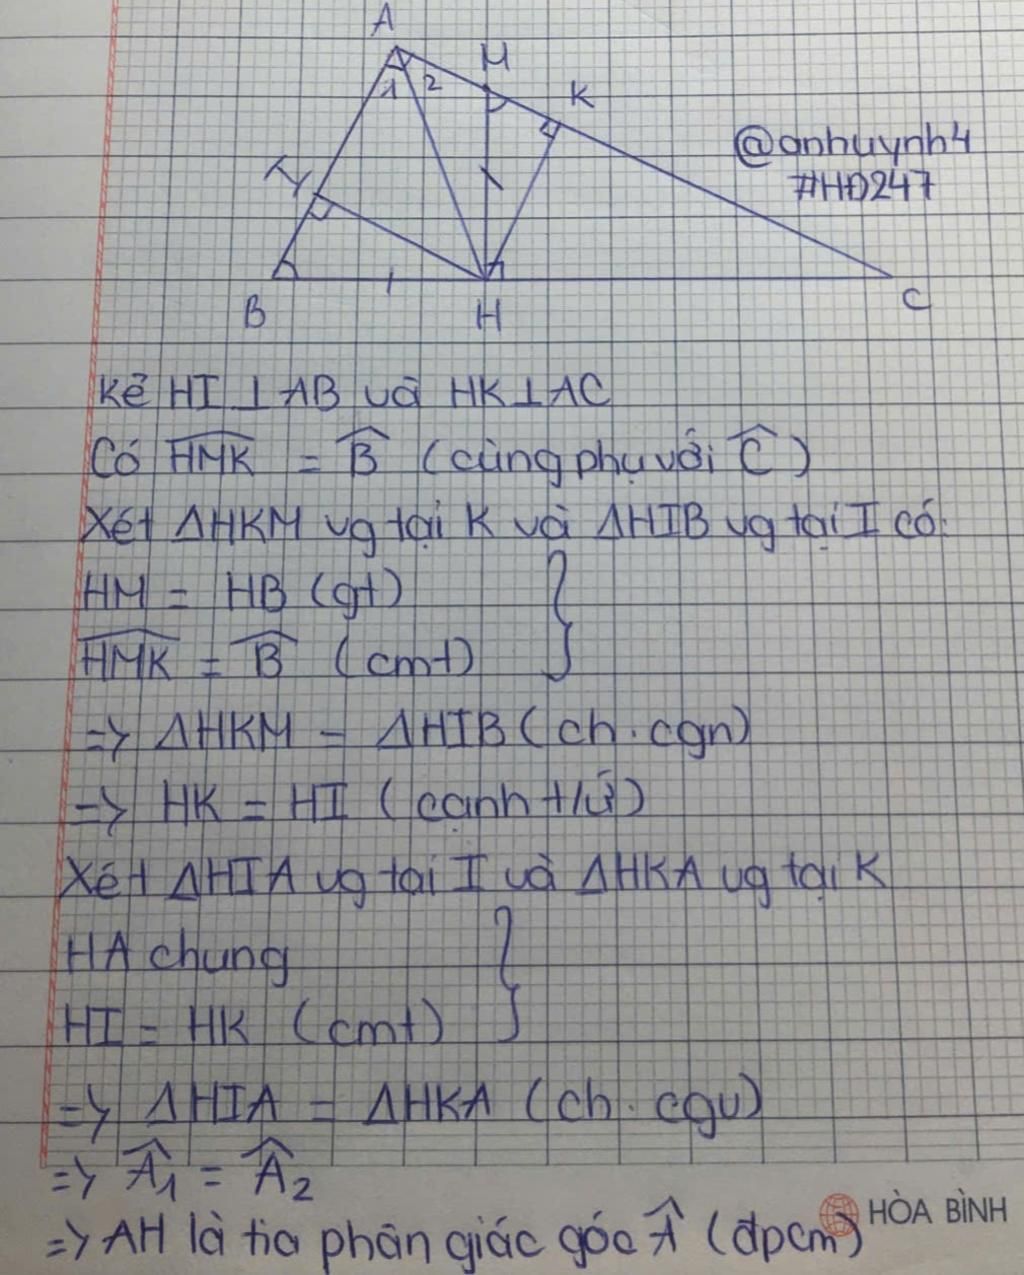 A
M
K
1 2
@anhuynh4
#HĐ247
I
B
H
C
Kẻ HI ⊥ AB và HK ⊥ AC
Có \widehat{HMK} = \widehat{B} (cùng phụ với \widehat{C})
Xét ΔHKM vg tại K và ΔHIB vg tại I có:
HM = HB (gt) }
\widehat{HMK} = \widehat{B} (cmt)
=> ΔHKM = ΔHIB (ch.cgn)
=> HK = HI (cạnh t/ứ)
Xét ΔHIA vg tại I và ΔHKA vg tại K
HA chung }
HI = HK (cmt)
=> ΔHIA = ΔHKA (ch.cgv)
=> \widehat{A}₁ = \widehat{A}₂
=> AH là tia phân giác góc \widehat{A} (đpcm)
HÒA BÌNH